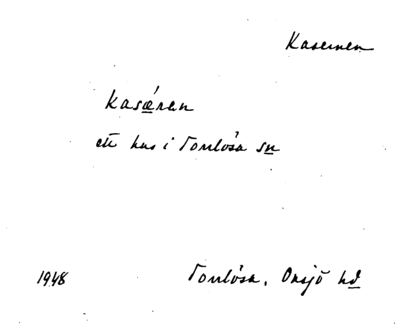 Kasernen
kasǽren
ett hus i Torrlösa sn
1948 Torrlösa. Onsjö hd